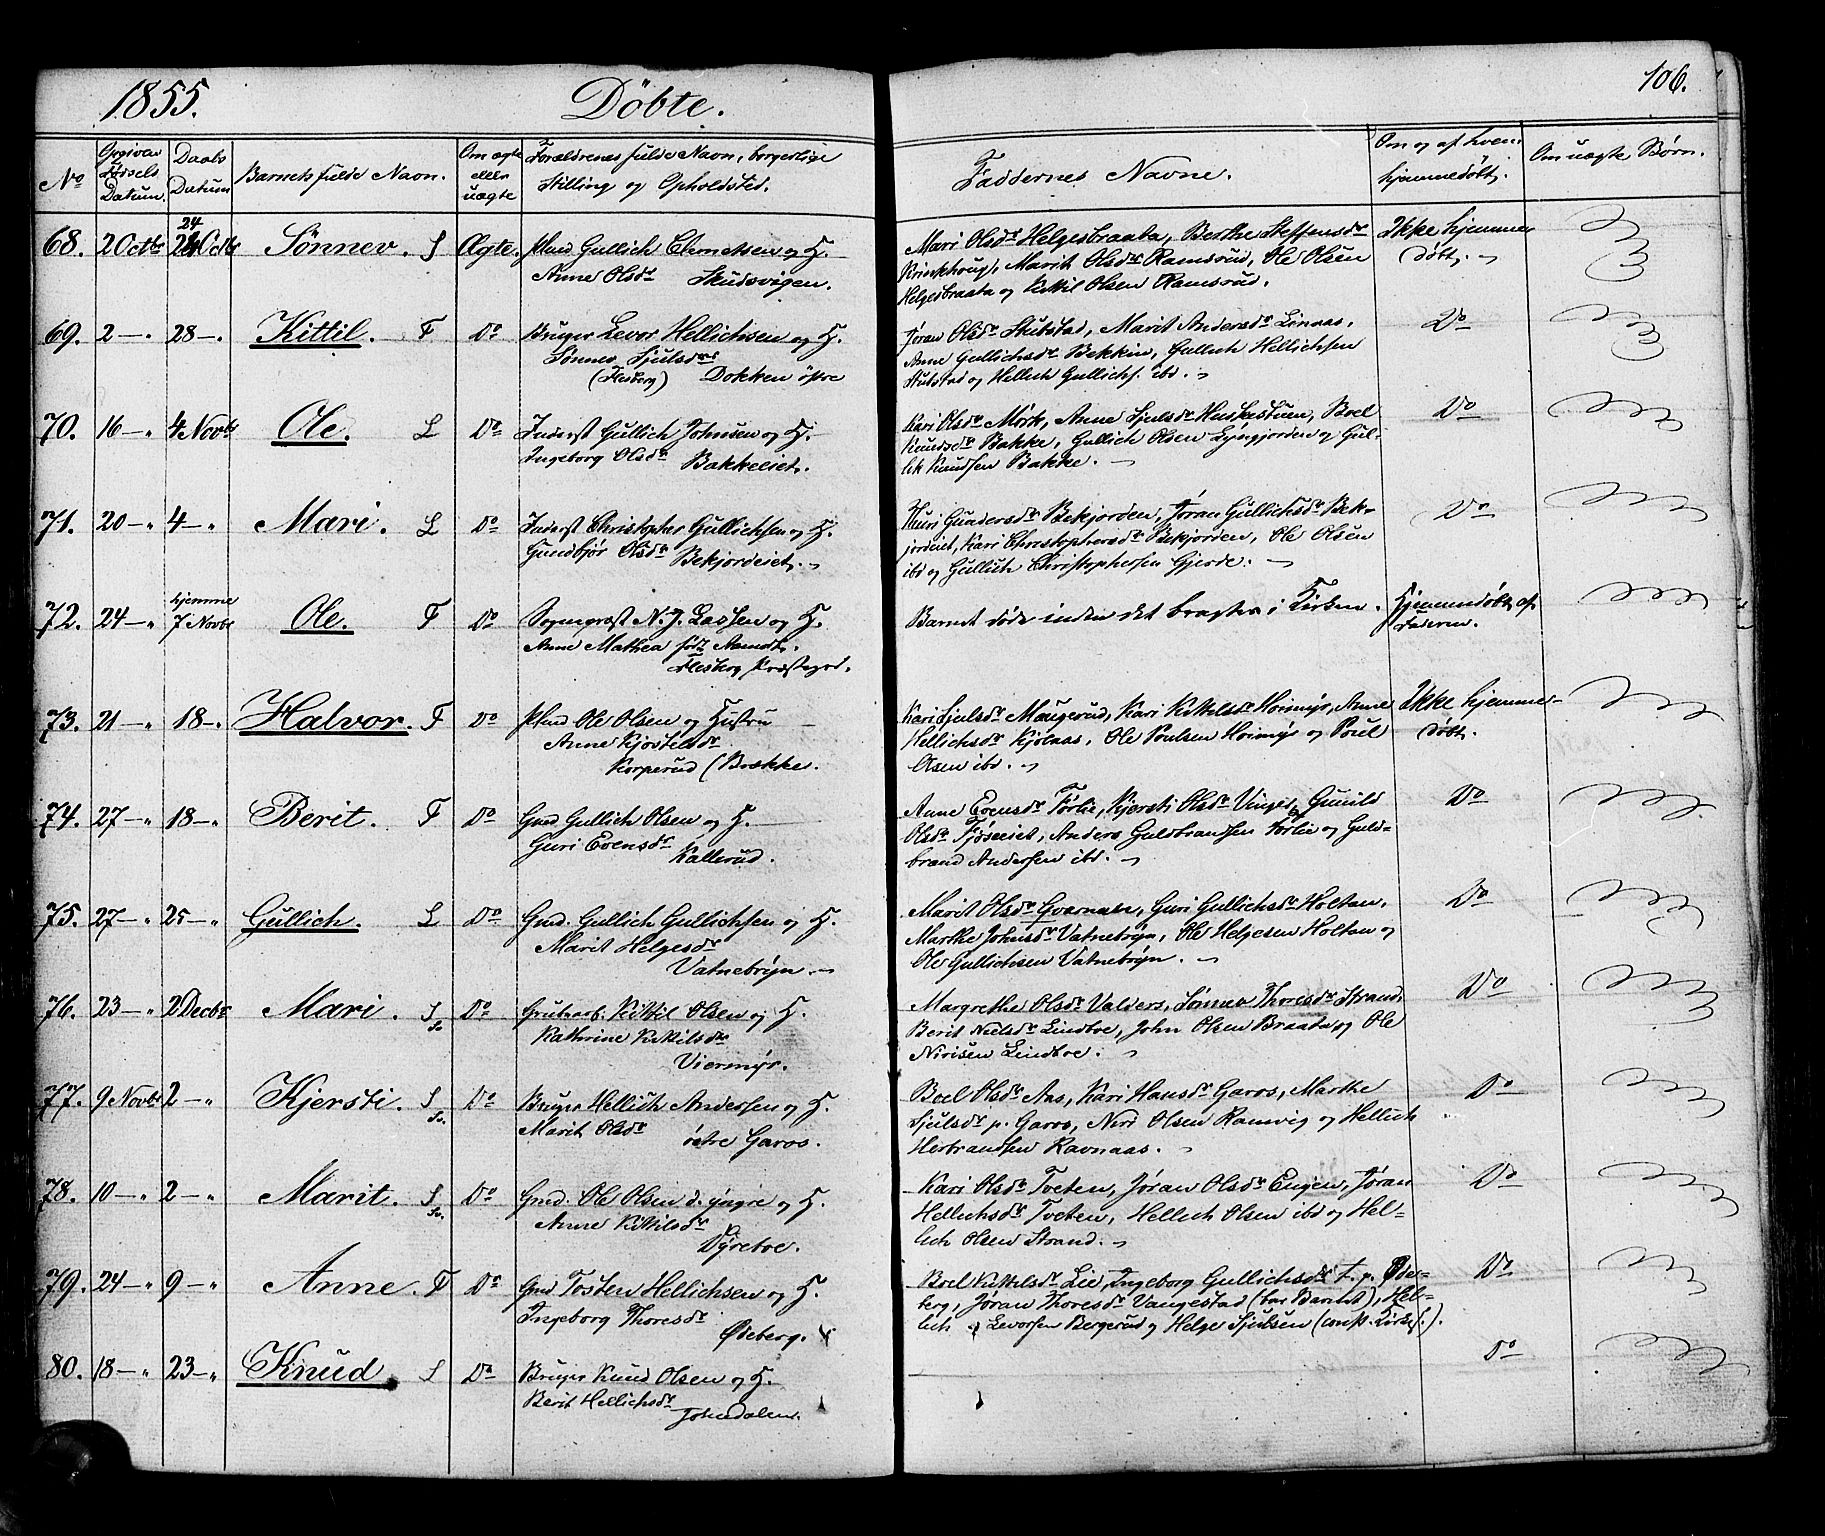 1855. Døbte. 106.
No
Opgiven Fødsels Datum.
Daabs Datum
Barnets fulde Navn.
Om ægte eller uægte
Forældrenes fulde Navn, borgerlige Stilling og Opholdsted.
Faddernes Navne.
Om og af hvem hjemmedøbt.
Om uægte Børn.
68. 2 Octbr 24 Octbr Sønnev. S Ægte. Gullich og H.
Anne Olsdr Skudsvigen.
Mari Olsdr Helgesbraata, Berthe Steffensdr
Marit Olsdr Ramsrud, Ole Olsen
Helgesbraata og Kittil Olsen Ramsrud.
Ikke hjemme
døbt.
69. 2 — 28 — Kittil. F Do Bruger Levor Hellichsen og H.
Sønnev Sjulsdr
(Flesberg) Dokken østre
Jøran Olsdr Stutstad, Marit Andersdr Linaas,
Anne Gullichsdr Bekkin, Gullich Hellichsen
Stutstad og Hellich Gullichs. ibd.
Do
70. 16 — 4 Novbr Ole. L Do Inderst Gullich Johnsen og H.
Ingeborg Olsdr Bakkeeiet.
Kari Olsdr Mørk, Anne Sjulsdr Boel
Knudsdr Bakke, Gullich Olsen Lyngjorden og Gul-
lik Knudsen Bakke.
Do
71. 20 — 4 — Mari. L Do Inderst Christopher Gullichsen og H.
Gundbjør Olsdr Bekjordeiet.
Guri Gundersdr Bekjorden, Jøran Gullichsdr Bek-
jordeiet, Kari Christophersdr Bekjorden, Ole Olsen
ibd og Gullich Christophersen Gjerde.
Do
72. 24 — hjemme
7 Novbr Ole. F Do Sogneprest N. J. Lassen og H.
Anne Mathea født
Flesberg Præstegrd.
Barnet døde inden det bragtes i Kirken.
Hjemmedøbt af
Faderen.
73. 21 — 18 — Halvor. F Do Ole Olsen og Hustru
Anne Kjøstelsdr
Korperud (Brække.
Kari Sjulsdr Maugerud, Kari Kittilsdr Hoimyr, Anne
Hellichsdr Kjølaas, Ole Poulsen Hoimyr og Poul
Olsen ibd.
Ikke hjemme-
døbt.
74. 27 — 18 — Berit. F Do Gmd Gullich Olsen og H.
Guri Evensdr Kallerud.
Anne Evensdr Førlie, Kjersti Olsdr Vinges, Gunild
Olsdr Anders Guldbransen Førlie og Guld-
brand Andersen ibd.
Do
75. 27 — 25 — Gullich. L Do Gmd. Gullich Gullichsen og H.
Marit Helgesdr
Vatnebryn.
Marit Olsdr Qvernaen, Guri Gullichsdr Holtan,
Marthe Johnsdr Vatnebryn, Ole Helgesen Holtan og
Ole Gullichsen Vatnebryn.
Do
76. 23 — 2 Decbr Mari. S Sv. Do Grubearb. Kittil Olsen og H.
Kathrine Kittilsdr
Viermyr.
Margrethe Olsdr Valders, Sønnev Thoresdr Strand,
Berit Nielsdr Lindboe, John Olsen Braata og Ole
Nirisen Lindboe.
Do
77. 9 Novbr 2 — Kjersti. S Sv. Do Bruger Hellich Andersen og H.
Marit Olsdr østre Garos.
Boel Olsdr Aas, Kari Hansdr Garos, Marthe
Sjulsdr p. Garos, Niri Olsen Ramvig og Hellich
Herbrandsen Ravnaas.
Do
78. 10 — 2 — Marit. S Sv. Do Gmd. Ole Olsen d. yngre og H.
Anne Kittilsdr
Dyreboe.
Kari Olsdr Tveten, Jøran Olsdr Engen, Jøran
Hellichsdr Tveten, Hellich Olsen ibd og Hel-
lich Olsen Strand.
Do
79. 24 — 9 — Anne. F Do Gmd Tosten Hellichsen og H.
Ingeborg Thoresdr
Ødeberg.
Boel Kittilsdr Lie, Ingeborg Gullichsdr t. p. Øde-
berg, Jøran Thoresdr Vangestad (bar Barnet), Hel-
lich Levorsen Bergerud og Helge Sjulsen
Do
80. 18 — 23 — Knud. S Do Bruger Knud Olsen og H.
Berit Hellichsdr
Johndalen.
Do